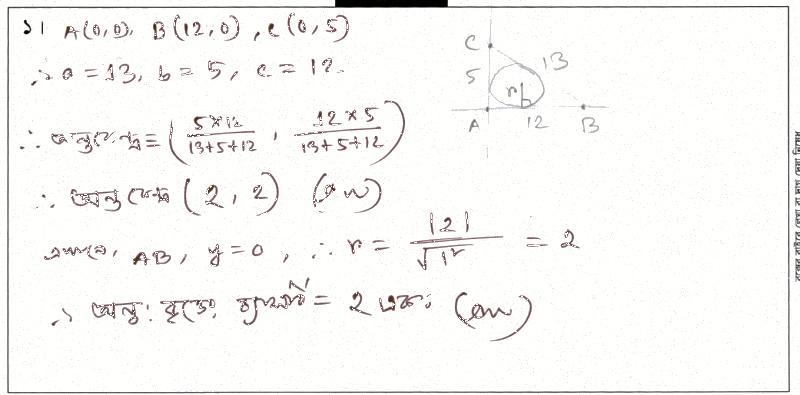 ১। A(0,0), B(12,0), C(0,5)
∴ a = 13, b = 5, c = 12.
∴ অন্তকেন্দ্র = (5×12/13+5+12 , 12×5/13+5+12)
∴ অন্তকেন্দ্র (2, 2) (Ans)
এখানে, AB, y = 0, ∴ r = |2|/√1² = 2
∴ অন্ত: বৃত্তের ব্যাসার্ধ = 2 একক (Ans)
C
5
13
r
A
12
B